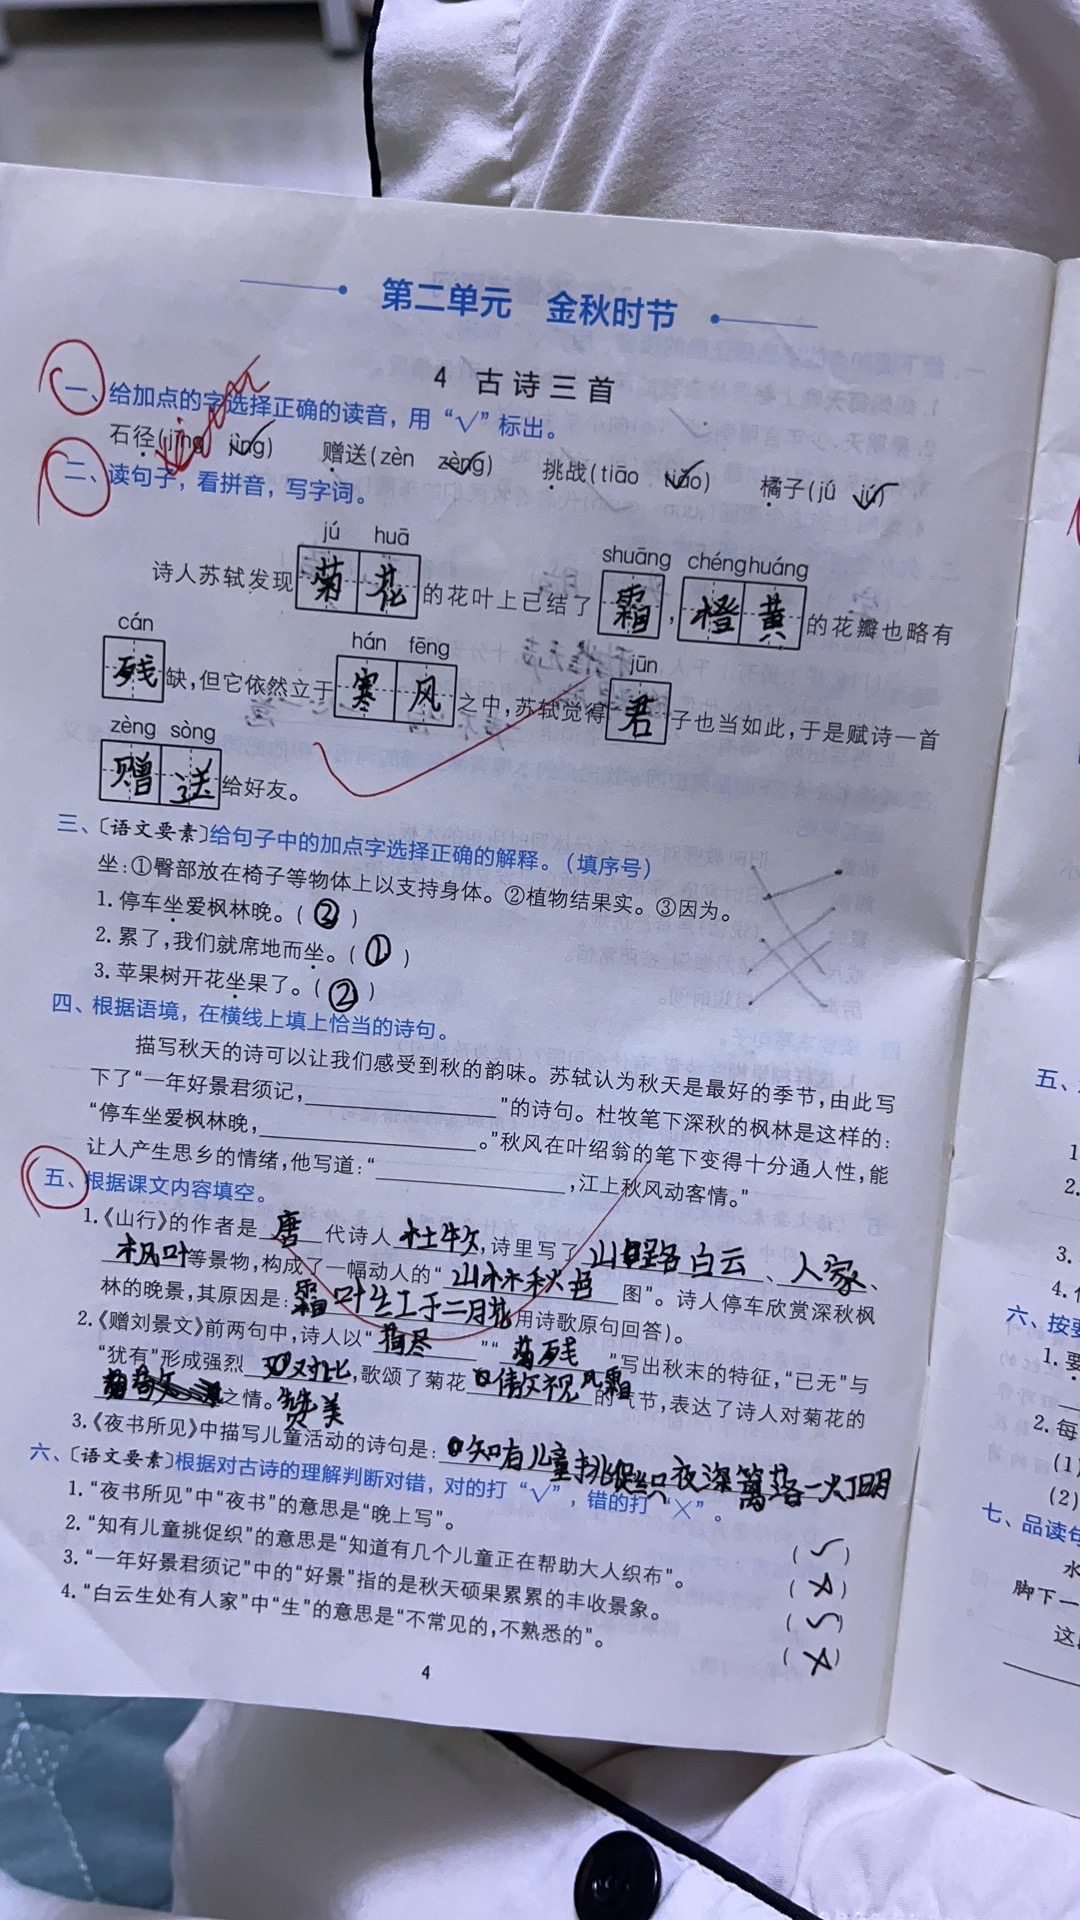 第二单元 金秋时节
4 古诗三首
一、给加点的字选择正确的读音，用“√”标出。
石径(jīng jìng) 赠送(zèn zèng) 挑战(tiāo tiǎo) 橘子(jú jú)
二、读句子，看拼音，写字词。
jú huā shuāng chéng huáng
诗人苏轼发现菊花的花叶上已结了霜,橙黄的花瓣也略有
cán hán fēng jūn
残缺,但它依然立于寒风之中,苏轼觉得君子也当如此,于是赋诗一首
zèng sòng
赠送给好友。
三、〔语文要素〕给句子中的加点字选择正确的解释。（填序号）
坐:①臀部放在椅子等物体上以支持身体。②植物结果实。③因为。
1. 停车坐爱枫林晚。( ③ )
2. 累了,我们就席地而坐。( ① )
3. 苹果树开花坐果了。( ② )
四、根据语境，在横线上填上恰当的诗句。
描写秋天的诗可以让我们感受到秋的韵味。苏轼认为秋天是最好的季节,由此写
下了“一年好景君须记,________”的诗句。杜牧笔下深秋的枫林是这样的:
“停车坐爱枫林晚,________。”秋风在叶绍翁的笔下变得十分通人性,能
让人产生思乡的情绪,他写道:“________,江上秋风动客情。”
五、根据课文内容填空。
1.《山行》的作者是唐代诗人杜牧,诗里写了山路白云、人家、
枫叶等景物,构成了一幅动人的“山林秋色图”。诗人停车欣赏深秋枫
林的晚景,其原因是:霜叶红于二月花用诗歌原句回答)。
2.《赠刘景文》前两句中,诗人以“荷尽”“菊残”写出秋末的特征,“已无”与
“犹有”形成强烈对比,歌颂了菊花傲视风霜的气节,表达了诗人对菊花的
之情。赞美
3.《夜书所见》中描写儿童活动的诗句是:知有儿童挑促织夜深篱落一灯明
六、〔语文要素〕根据对古诗的理解判断对错，对的打“√”，错的打“×”。
1. “夜书所见”中“夜书”的意思是“晚上写”。 (√)
2. “知有儿童挑促织”的意思是“知道有几个儿童正在帮助大人织布”。 (×)
3. “一年好景君须记”中的“好景”指的是秋天硕果累累的丰收景象。 (√)
4. “白云生处有人家”中“生”的意思是“不常见的,不熟悉的”。 (×)
4
五、
1
2.
3.
4.
六、按要
1. 要
2. 每
(1)
(2)
七、品读句
水
脚下一